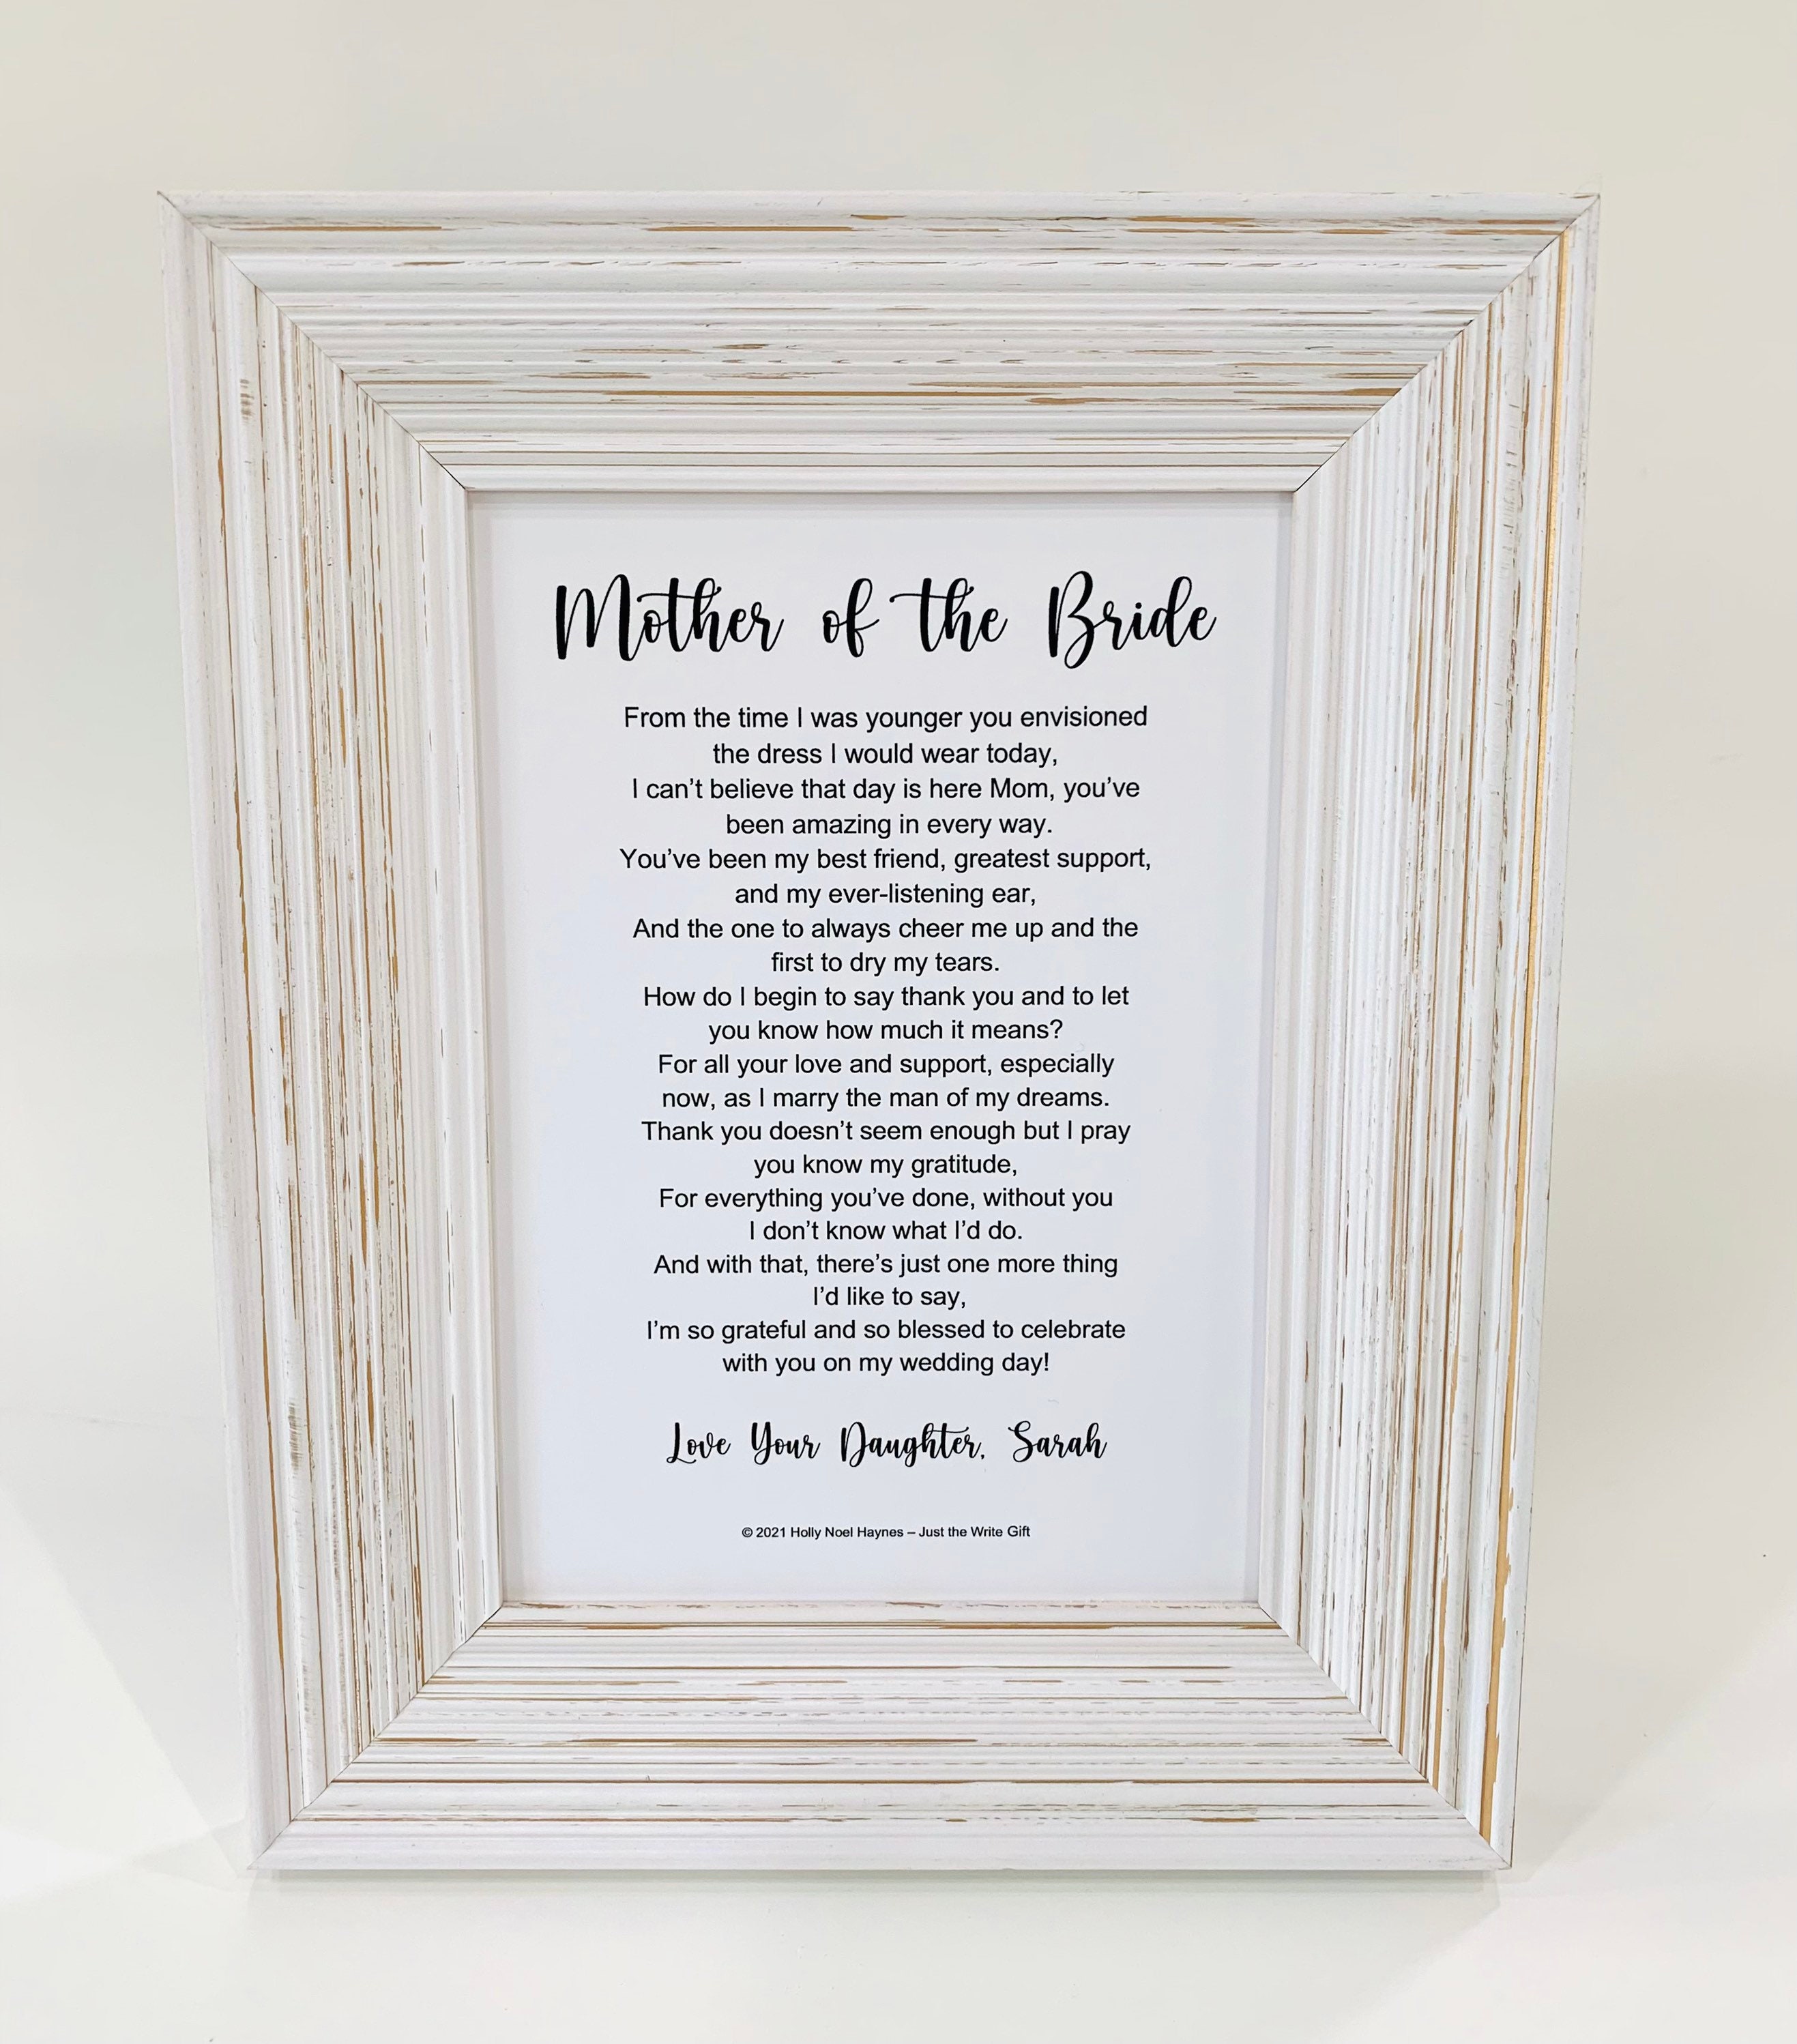 Mother of the Bride
From the time I was younger you envisioned
the dress I would wear today,
I can’t believe that day is here Mom, you’ve
been amazing in every way.
You’ve been my best friend, greatest support,
and my ever-listening ear,
And the one to always cheer me up and the
first to dry my tears.
How do I begin to say thank you and to let
you know how much it means?
For all your love and support, especially
now, as I marry the man of my dreams.
Thank you doesn’t seem enough but I pray
you know my gratitude,
For everything you’ve done, without you
I don’t know what I’d do.
And with that, there’s just one more thing
I’d like to say,
I’m so grateful and so blessed to celebrate
with you on my wedding day!
Love Your Daughter, Sarah
© 2021 Holly Noel Haynes – Just the Write Gift